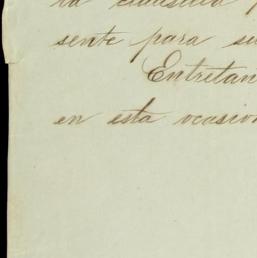 la
sente para su
Entretan
en esta ocasion